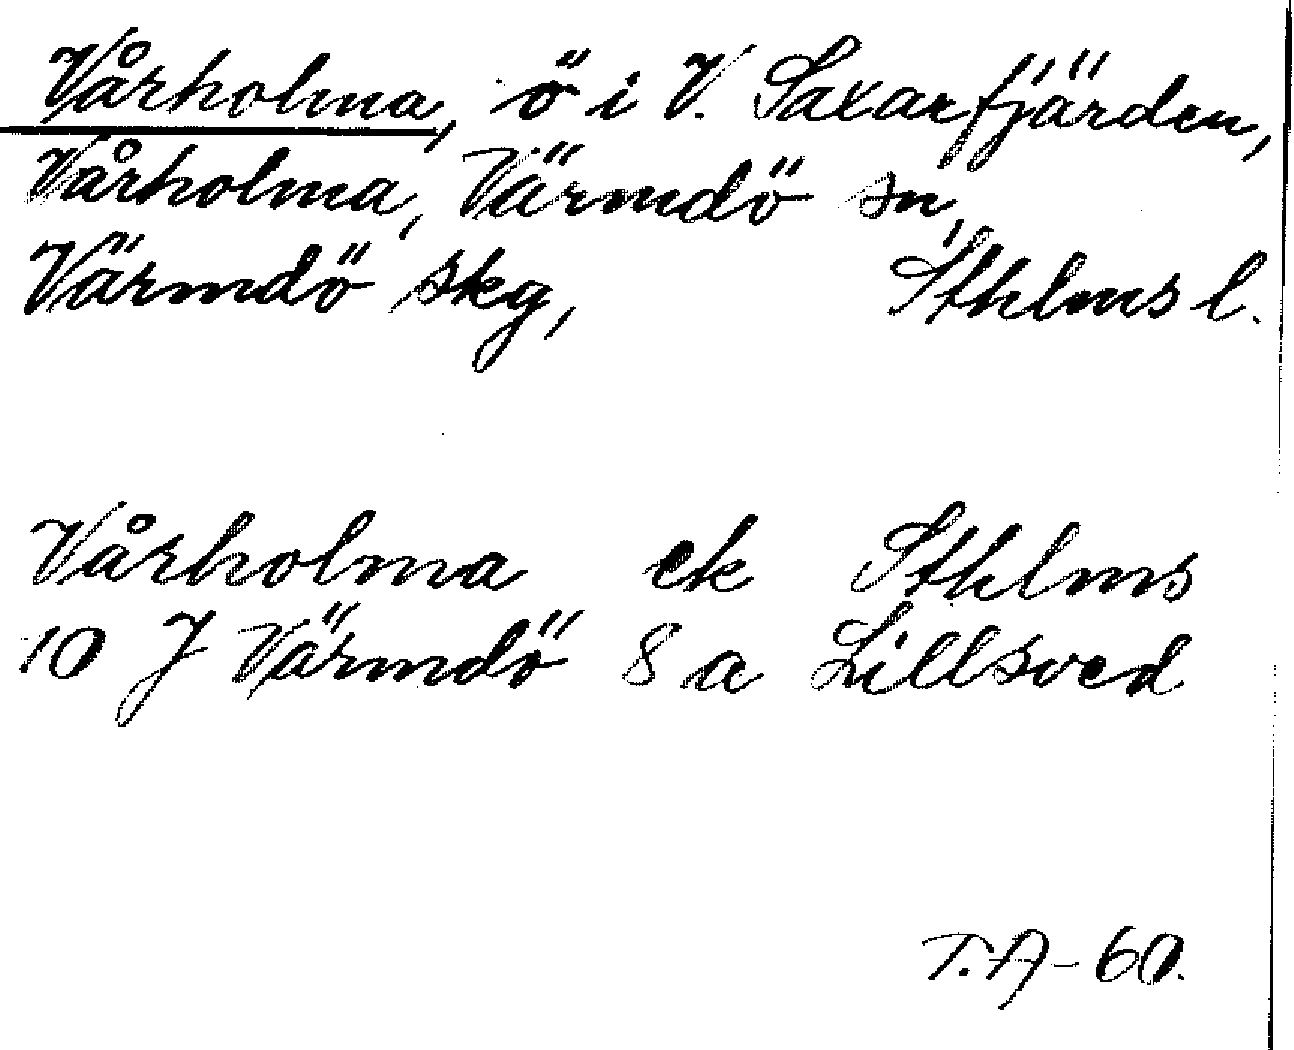 Vårholma, ö i V. Saxarfjärden,
Vårholma, Värmdö sn,
Värmdö skg, Sthlms l.
Vårholma ek Sthlms
10 J Värmdö 8 a Lillsved
T.A-60.